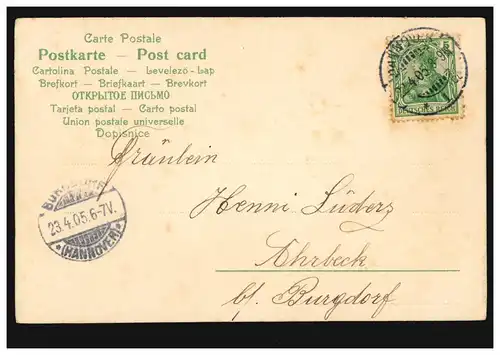 Carte Postale
Postkarte — Post card
Cartolina Postale — Levelezö-Lap
Brefkort — Briefkaart — Brevkort
ОТКРЫТОЕ ПИСЬМО
Tarjeta postal — Carto postal
Union postale universelle
Dopisnice
5
DEUTSCHES REICH
Fräulein
Henni Lüders
Ahrbeck
bf. Burgdorf
23.4.05.6-7V.
*(HANNOVER)*